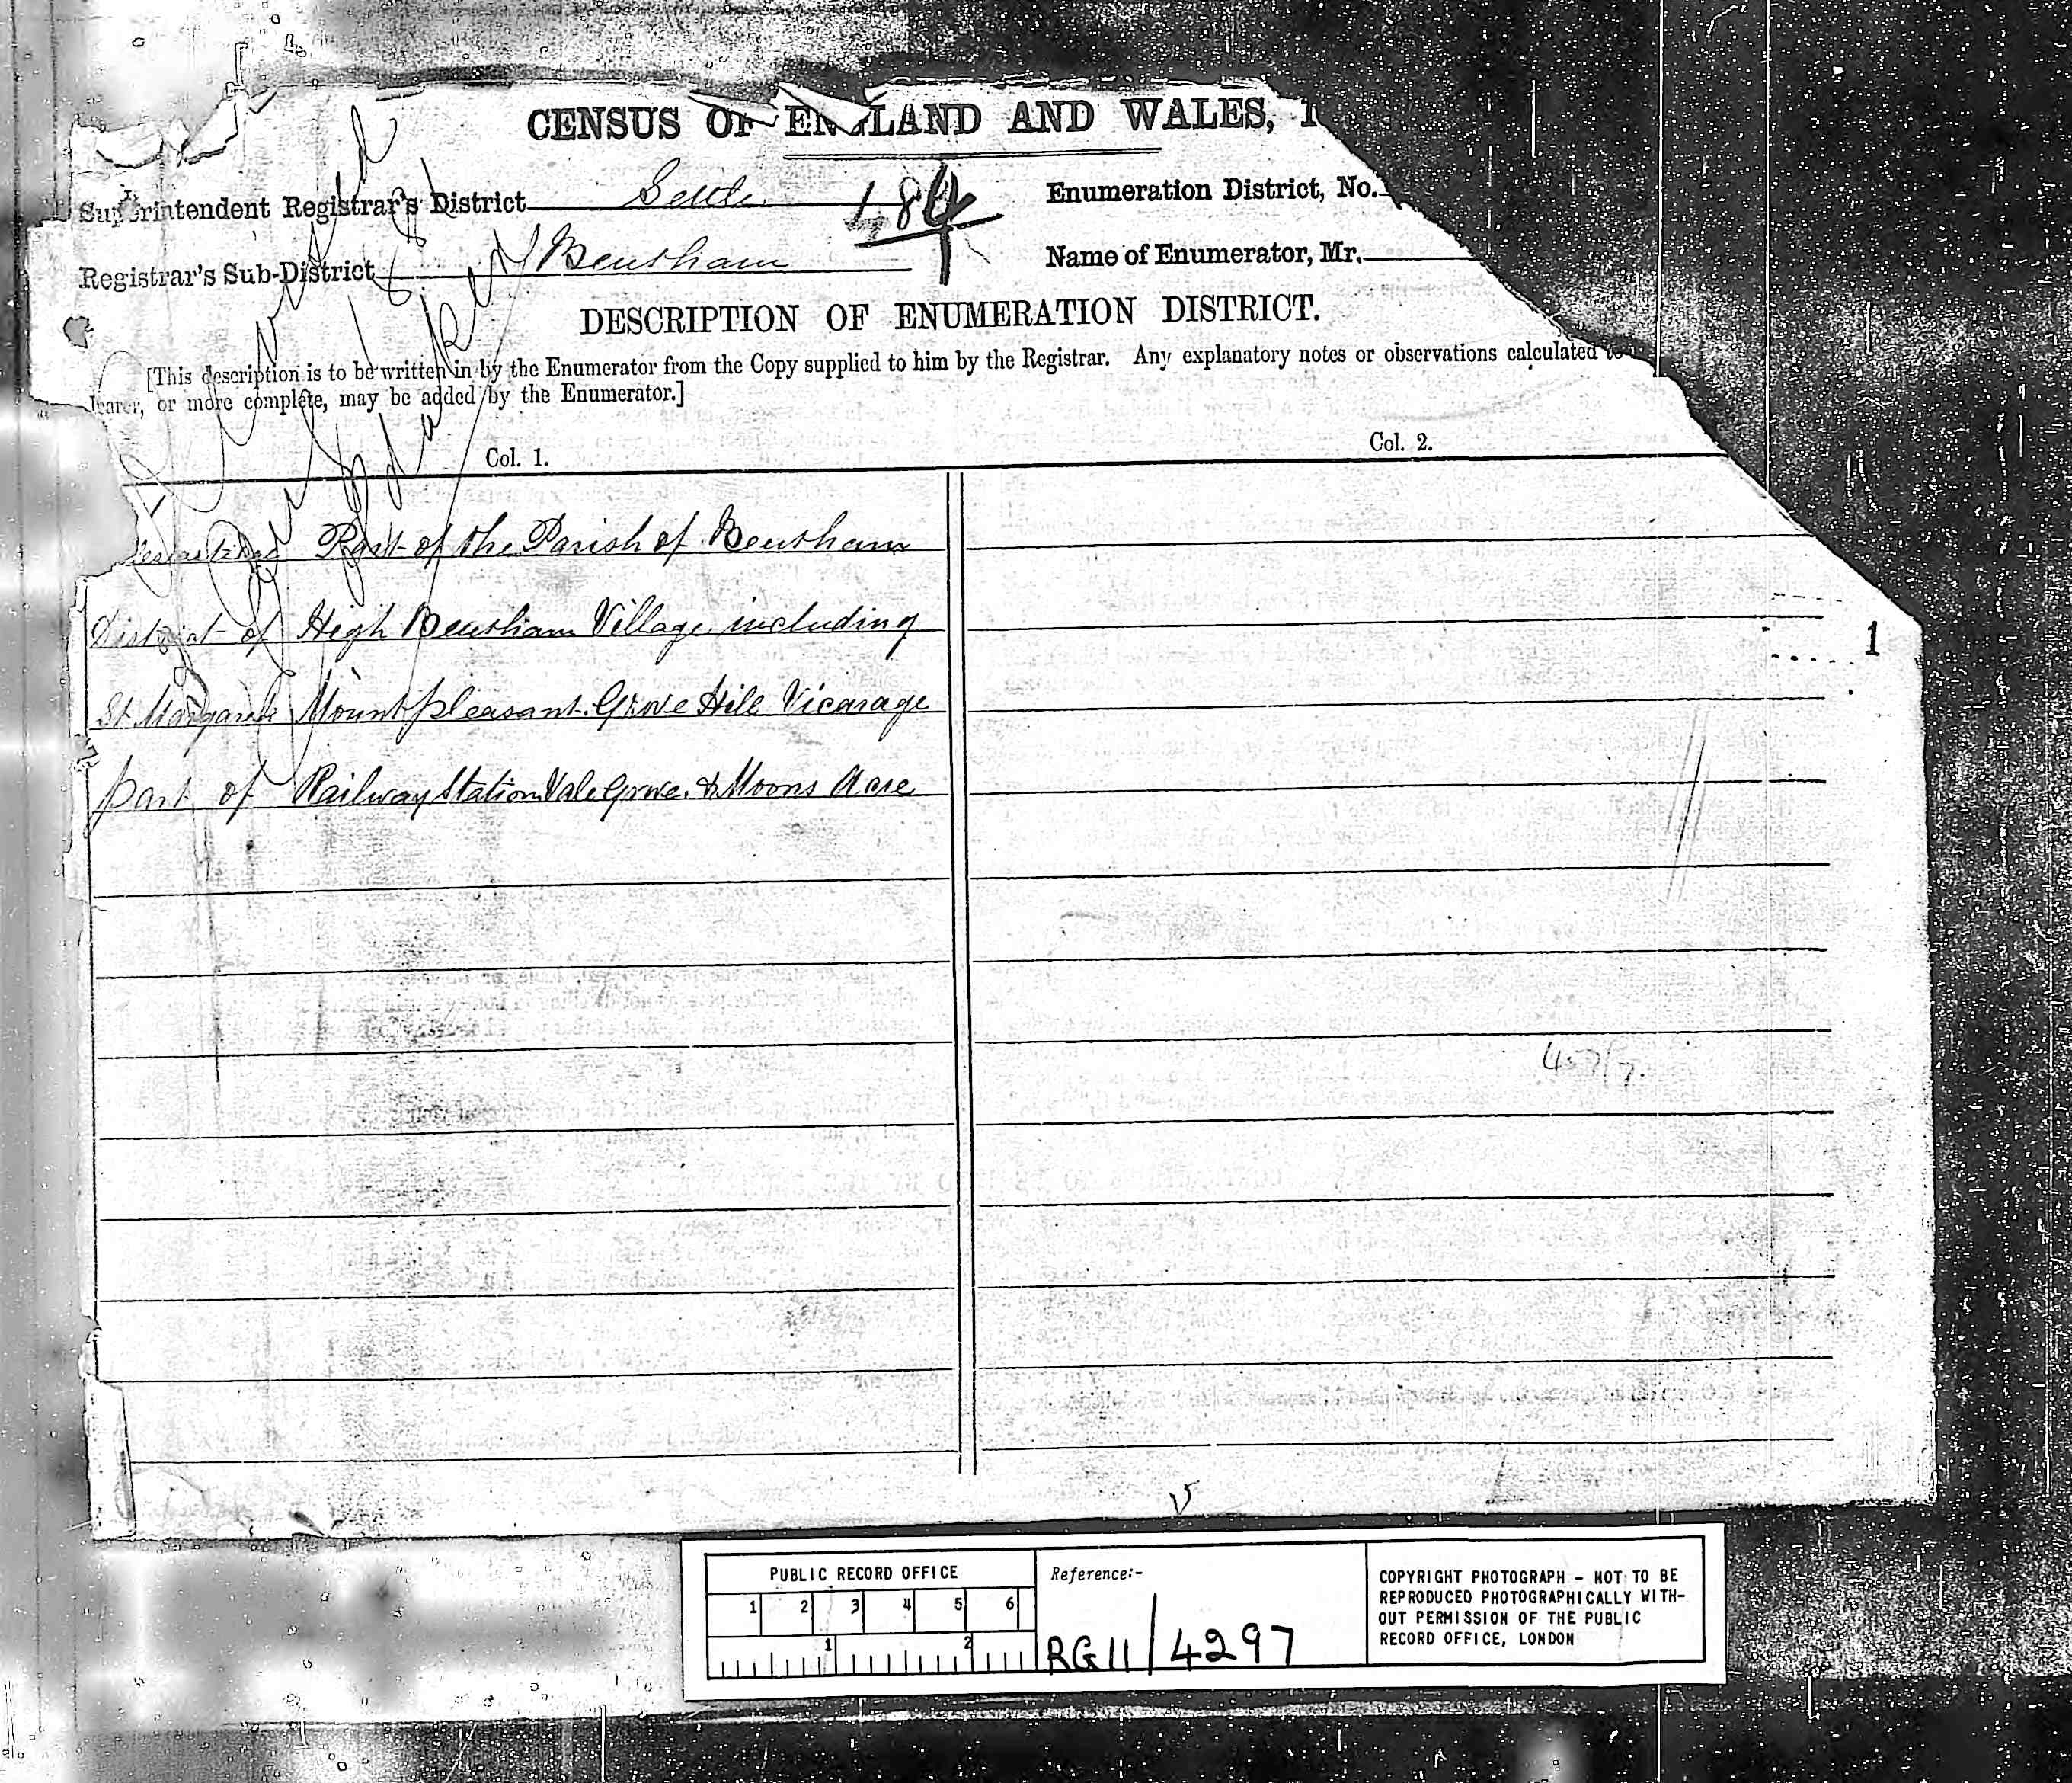 CENSUS OF ENGLAND AND WALES, 1
Superintendent Registrar's District Settle
484
1
Enumeration District, No.
Registrar's Sub-District Bentham
Name of Enumerator, Mr.
DESCRIPTION OF ENUMERATION DISTRICT.
[This description is to be written in by the Enumerator from the Copy supplied to him by the Registrar. Any explanatory notes or observations calculated to
learer, or more complete, may be added by the Enumerator.]
Col. 1.
Col. 2.
Part of the Parish of Bentham
District of High Bentham Village including
St Margarets Mountpleasant. Grove Hill Vicarage
part of Railway Station Vale Grove. & Moons Acre
1
457/7.
PUBLIC RECORD OFFICE
1 2 3 4 5 6
1 2
Reference:-
RG11/4297
COPYRIGHT PHOTOGRAPH - NOT TO BE
REPRODUCED PHOTOGRAPHICALLY WITH-
OUT PERMISSION OF THE PUBLIC
RECORD OFFICE, LONDON